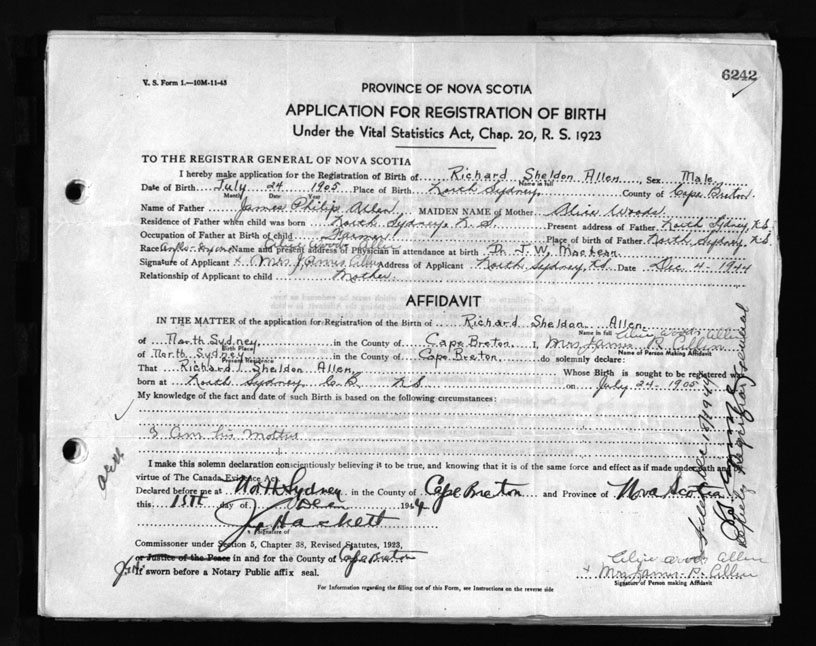 V. S. Form 1.—10M-11-43
6242
PROVINCE OF NOVA SCOTIA
APPLICATION FOR REGISTRATION OF BIRTH
Under the Vital Statistics Act, Chap. 20, R. S. 1923
TO THE REGISTRAR GENERAL OF NOVA SCOTIA
I hereby make application for the Registration of Birth of Richard Sheldon Allen, Sex Male
Name in full
Date of Birth July 24 1905 Place of Birth North Sydney County of Cape Breton
Month Date Year
Name of Father James Philip Allen MAIDEN NAME of Mother Alice Woods
Residence of Father when child was born North Sydney N.S. Present address of Father North Sydney, N.S.
Occupation of Father at Birth of child Farmer Place of birth of Father North Sydney N.S.
Race Name and present address of Physician in attendance at birth Dr. J. W. MacLean
Signature of Applicant Mrs James Allen Address of Applicant North Sydney, N.S. Date Dec 4 - 1944
Relationship of Applicant to child Mother
AFFIDAVIT
IN THE MATTER of the application for Registration of the Birth of Richard Sheldon Allen
Name in full
of North Sydney in the County of Cape Breton I, Mrs James P. Allen
Birth Place
Name of Person Making Affidavit
of North Sydney in the County of Cape Breton do solemnly declare:
Present Residence
That Richard Sheldon Allen Whose Birth is sought to be registered was
born at North Sydney C.B. N.S. on July 24 - 1905
My knowledge of the fact and date of such Birth is based on the following circumstances:
I am his Mother
I make this solemn declaration conscientiously believing it to be true, and knowing that it is of the same force and effect as if made under oath and
virtue of The Canada Evidence Act.
Declared before me at North Sydney in the County of Cape Breton and Province of Nova Scotia
this 15th day of Dec 1944
J. Hackett
Signature of
Commissoner under Section 5, Chapter 38, Revised Statutes, 1923,
or Justice of the Peace in and for the County of Cape Breton
If sworn before a Notary Public affix seal.
Alice Woods Allen
Mrs James P. Allen
Signature of Person making Affidavit
For Information regarding the filling out of this Form, see Instructions on the reverse side